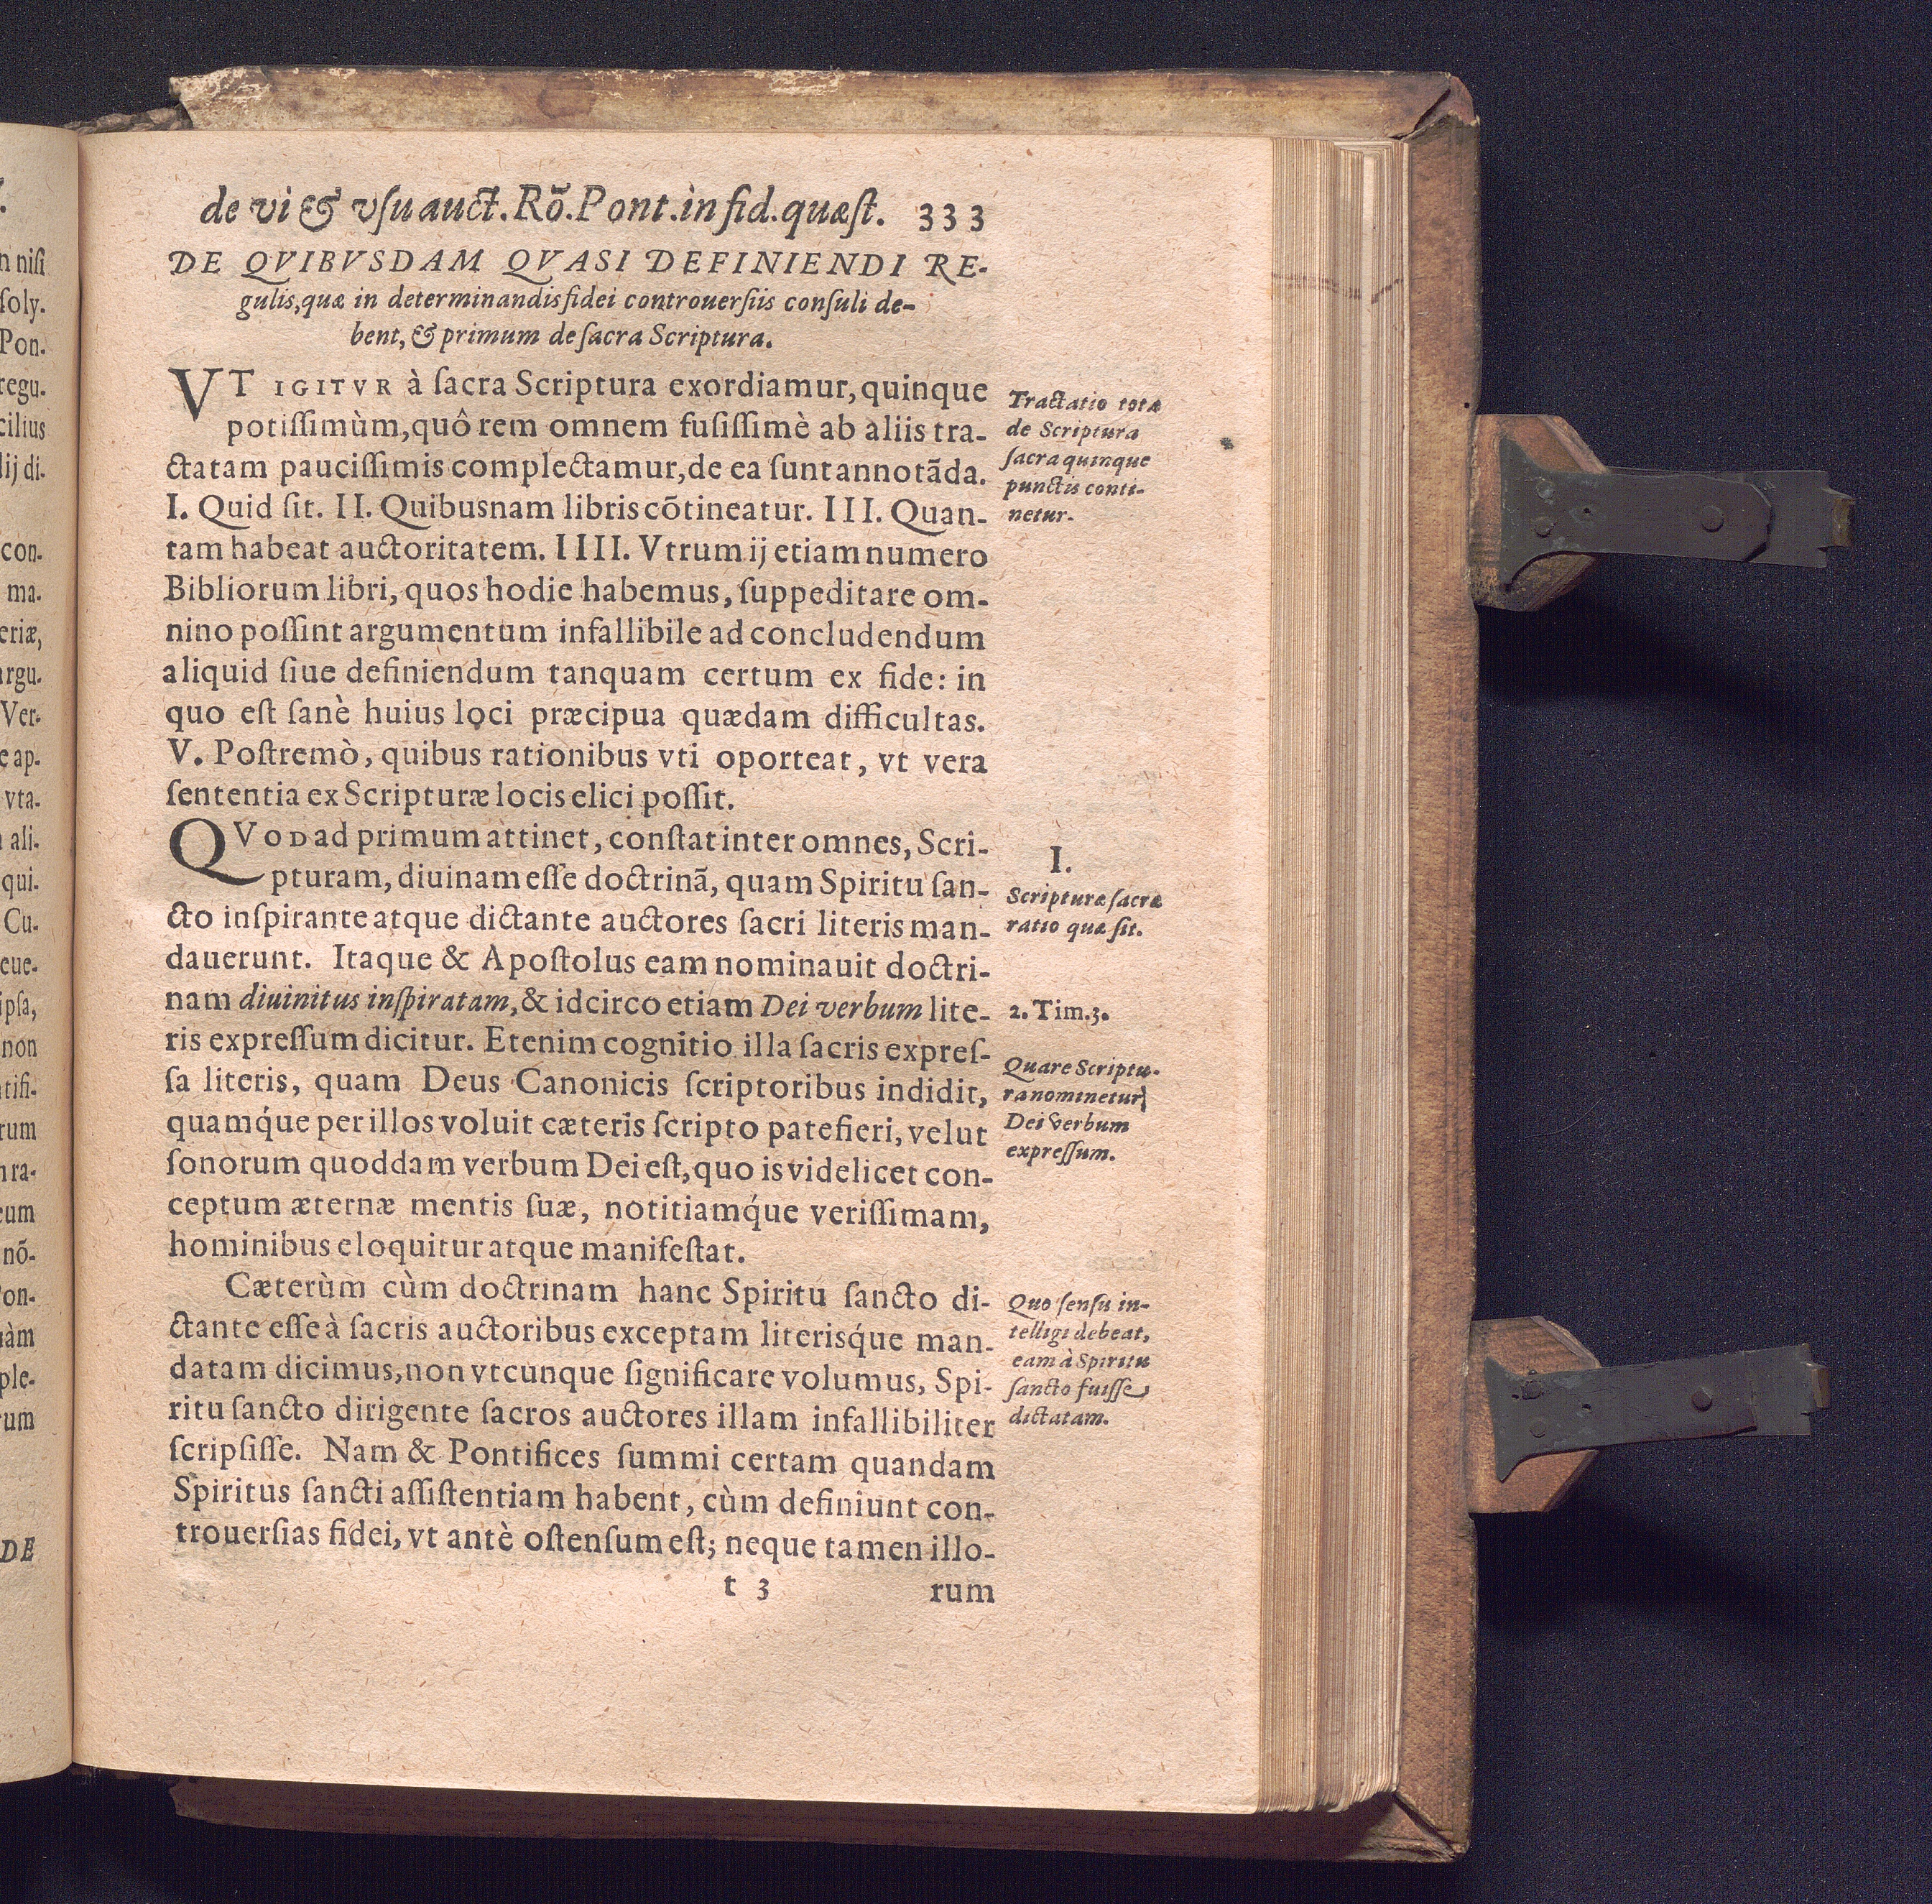 de vi & vſu auct. Rõ. Pont. in fid. quæſt. 333
DE QVIBVSDAM QVASI DEFINIENDI RE-
gulis, quæ in determinandis fidei controuerſiis conſuli de-
bent, & primum de ſacra Scriptura.
VT IGITVR à ſacra Scriptura exordiamur, quinque
potiſſimùm, quô rem omnem fuſiſſimè ab aliis tra-
ctatam pauciſſimis complectamur, de ea ſunt annotãda.
I. Quid ſit. II. Quibusnam libris cõtineatur. III. Quan-
tam habeat auctoritatem. IIII. Vtrum ij etiam numero
Bibliorum libri, quos hodie habemus, ſuppeditare om-
nino poſſint argumentum infallibile ad concludendum
aliquid ſiue definiendum tanquam certum ex fide: in
quo eſt ſanè huius loci præcipua quædam difficultas.
V. Poſtremò, quibus rationibus vti oporteat, vt vera
ſententia ex Scripturæ locis elici poſſit.
Tractatio totæ
de Scriptura
ſacra quinque
punctis conti-
netur.
QVOD ad primum attinet, conſtat inter omnes, Scri-
pturam, diuinam eſſe doctrinã, quam Spiritu ſan-
cto inſpirante atque dictante auctores ſacri literis man-
dauerunt. Itaque & Apoſtolus eam nominauit doctri-
nam diuinitus inſpiratam, & idcirco etiam Dei verbum lite-
ris expreſſum dicitur. Etenim cognitio illa ſacris expreſ-
ſa literis, quam Deus Canonicis ſcriptoribus indidit,
quamq́ue per illos voluit cæteris ſcripto patefieri, velut
ſonorum quoddam verbum Dei eſt, quo is videlicet con-
ceptum æternæ mentis ſuæ, notitiamq́ue veriſſimam,
hominibus eloquitur atque manifeſtat.
I.
Scripturæ ſacræ
ratio quæ ſit.
2. Tim. 3.
Quare Scriptu-
ra nominetur
Dei verbum
expreſſum.
Cæterùm cùm doctrinam hanc Spiritu ſancto di-
ctante eſſe à ſacris auctoribus exceptam literisq́ue man-
datam dicimus, non vtcunque ſignificare volumus, Spi-
ritu ſancto dirigente ſacros auctores illam infallibiliter
ſcripſiſſe. Nam & Pontifices ſummi certam quandam
Spiritus ſancti aſſiſtentiam habent, cùm definiunt con-
trouerſias fidei, vt antè oſtenſum eſt; neque tamen illo-
Quo ſenſu in-
telligi debeat,
eam à Spiritu
ſancto fuiſſe
dictatam.
t 3 rum
n niſi
ſoly.
Pon.
regu.
cilius
lij di.
con.
ma.
eriæ,
argu.
Ver.
e ap.
vta.
ali.
qui.
Cu.
eue.
ipſa,
non
tifi-
rum
ra-
eum
nõ-
on-
àm
ple-
um
DE